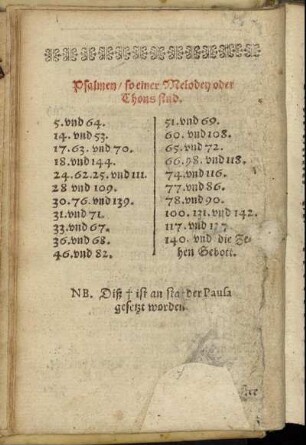 Psalmen / so einer Melodey oder
Thons sind.
5.vnd 64.
14.vnd 53.
17.63.vnd 70.
18.vnd 144.
24.62.25.vnd 111.
28 vnd 109.
30.76.vnd 139.
31.vnd 71.
33.vnd 67.
36.vnd 68.
46.vnd 82.
51.vnd 69.
60.vnd 108.
65.vnd 72.
66.98.vnd 118.
74.vnd 116.
77.vnd 86.
78.vnd 90.
100.131.vnd 142.
117.vnd 127
140.vnd die Ze-
hen Gebott.
NB. Diß † ist an statt der Pausa
gesetzt worden